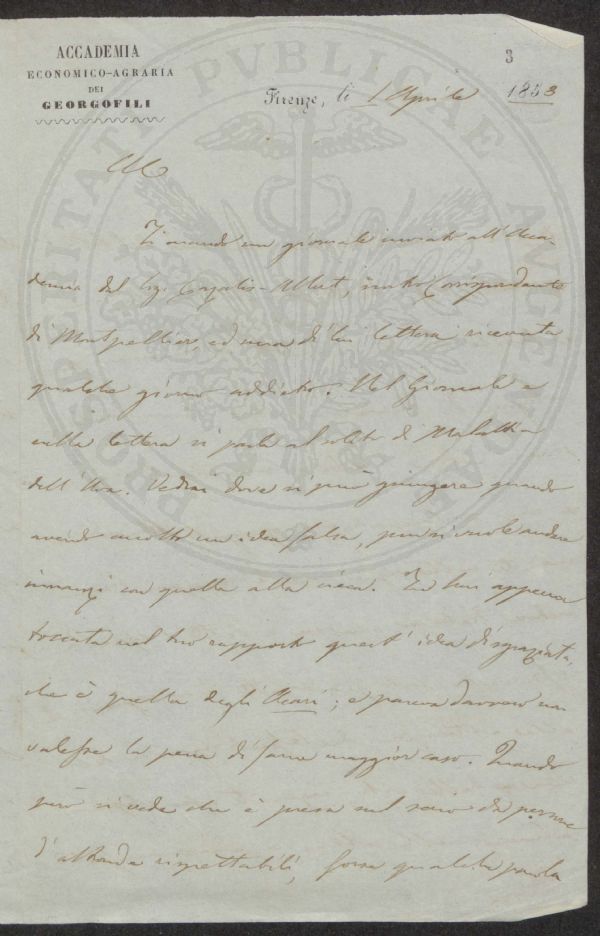 3
ACCADEMIA
ECONOMICO-AGRARIA
DEI
GEORGOFILI
Firenze, li 1 Aprile 1853
PROSPERITATI PVBLICAE AVGENDAE
Ti mando un giornale inviato all'Acca-
demia dal Sig. Cazalis-Allut, nostro Corrispondente
di Montpellier, ed una di lui lettera ricevuta
qualche giorno addietro. Nel Giornale e
nella lettera si parla al solito di Malattia
dell'Uva. Vedrai dove si può giungere quando
avendo accolto un idea falsa, si vuole andare
innanzi con quella alla cieca. Tu hai appena
toccata nel tuo rapporto quest'idea disgraziata,
che è quella degli Acari; e pareva davvero non
valesse la pena di farne maggior caso. Quando
però si vede che è presa sul serio da persone
d'altronde rispettabili, forse qualche parola